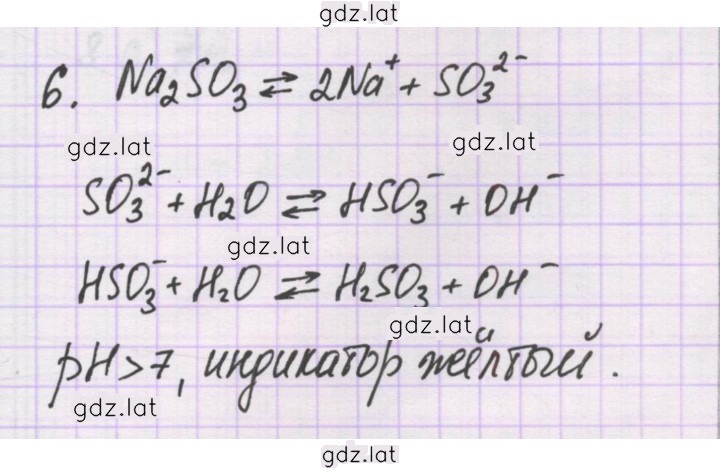 gdz.lat
6. Na₂SO₃ ⇄ 2Na⁺ + SO₃²⁻
gdz.lat
gdz.lat
SO₃²⁻ + H₂O ⇄ HSO₃⁻ + OH⁻
gdz.lat
HSO₃⁻ + H₂O ⇄ H₂SO₃ + OH⁻
gdz.lat
pH > 7, индикатор жёлтый.
gdz.lat
gdz.lat